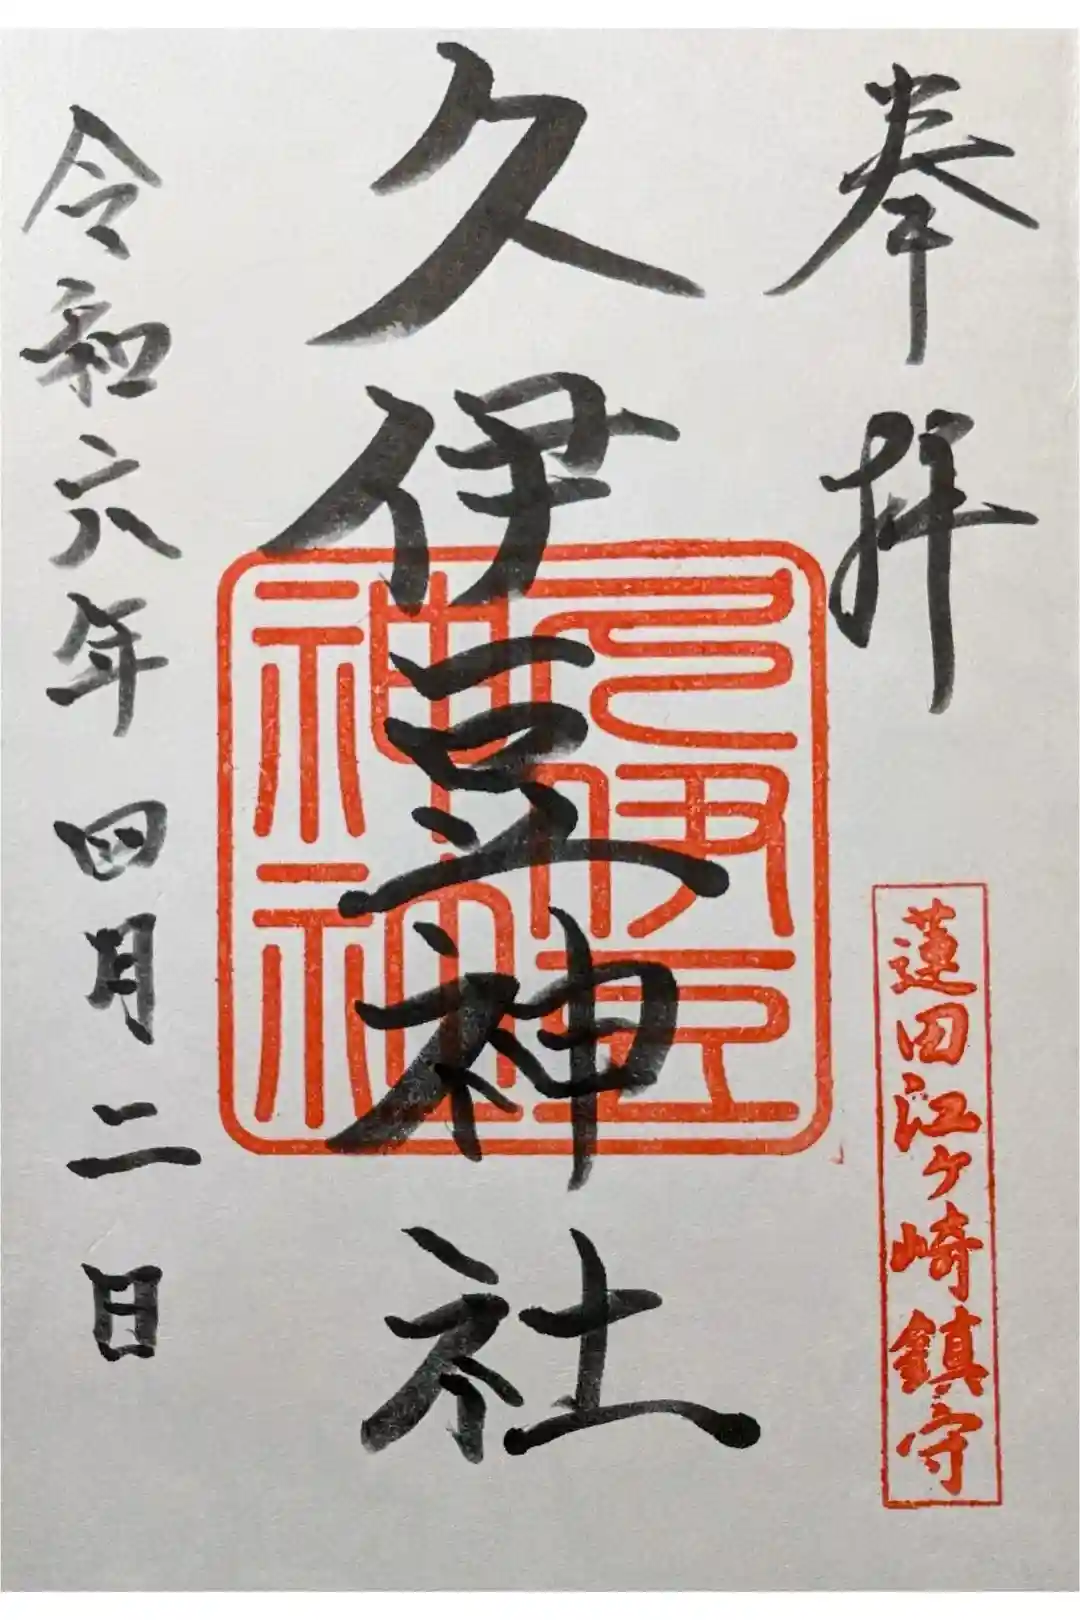 奉拝
蓮田江ヶ崎鎮守
久伊豆神社
久伊豆
神社
令和六年四月二日